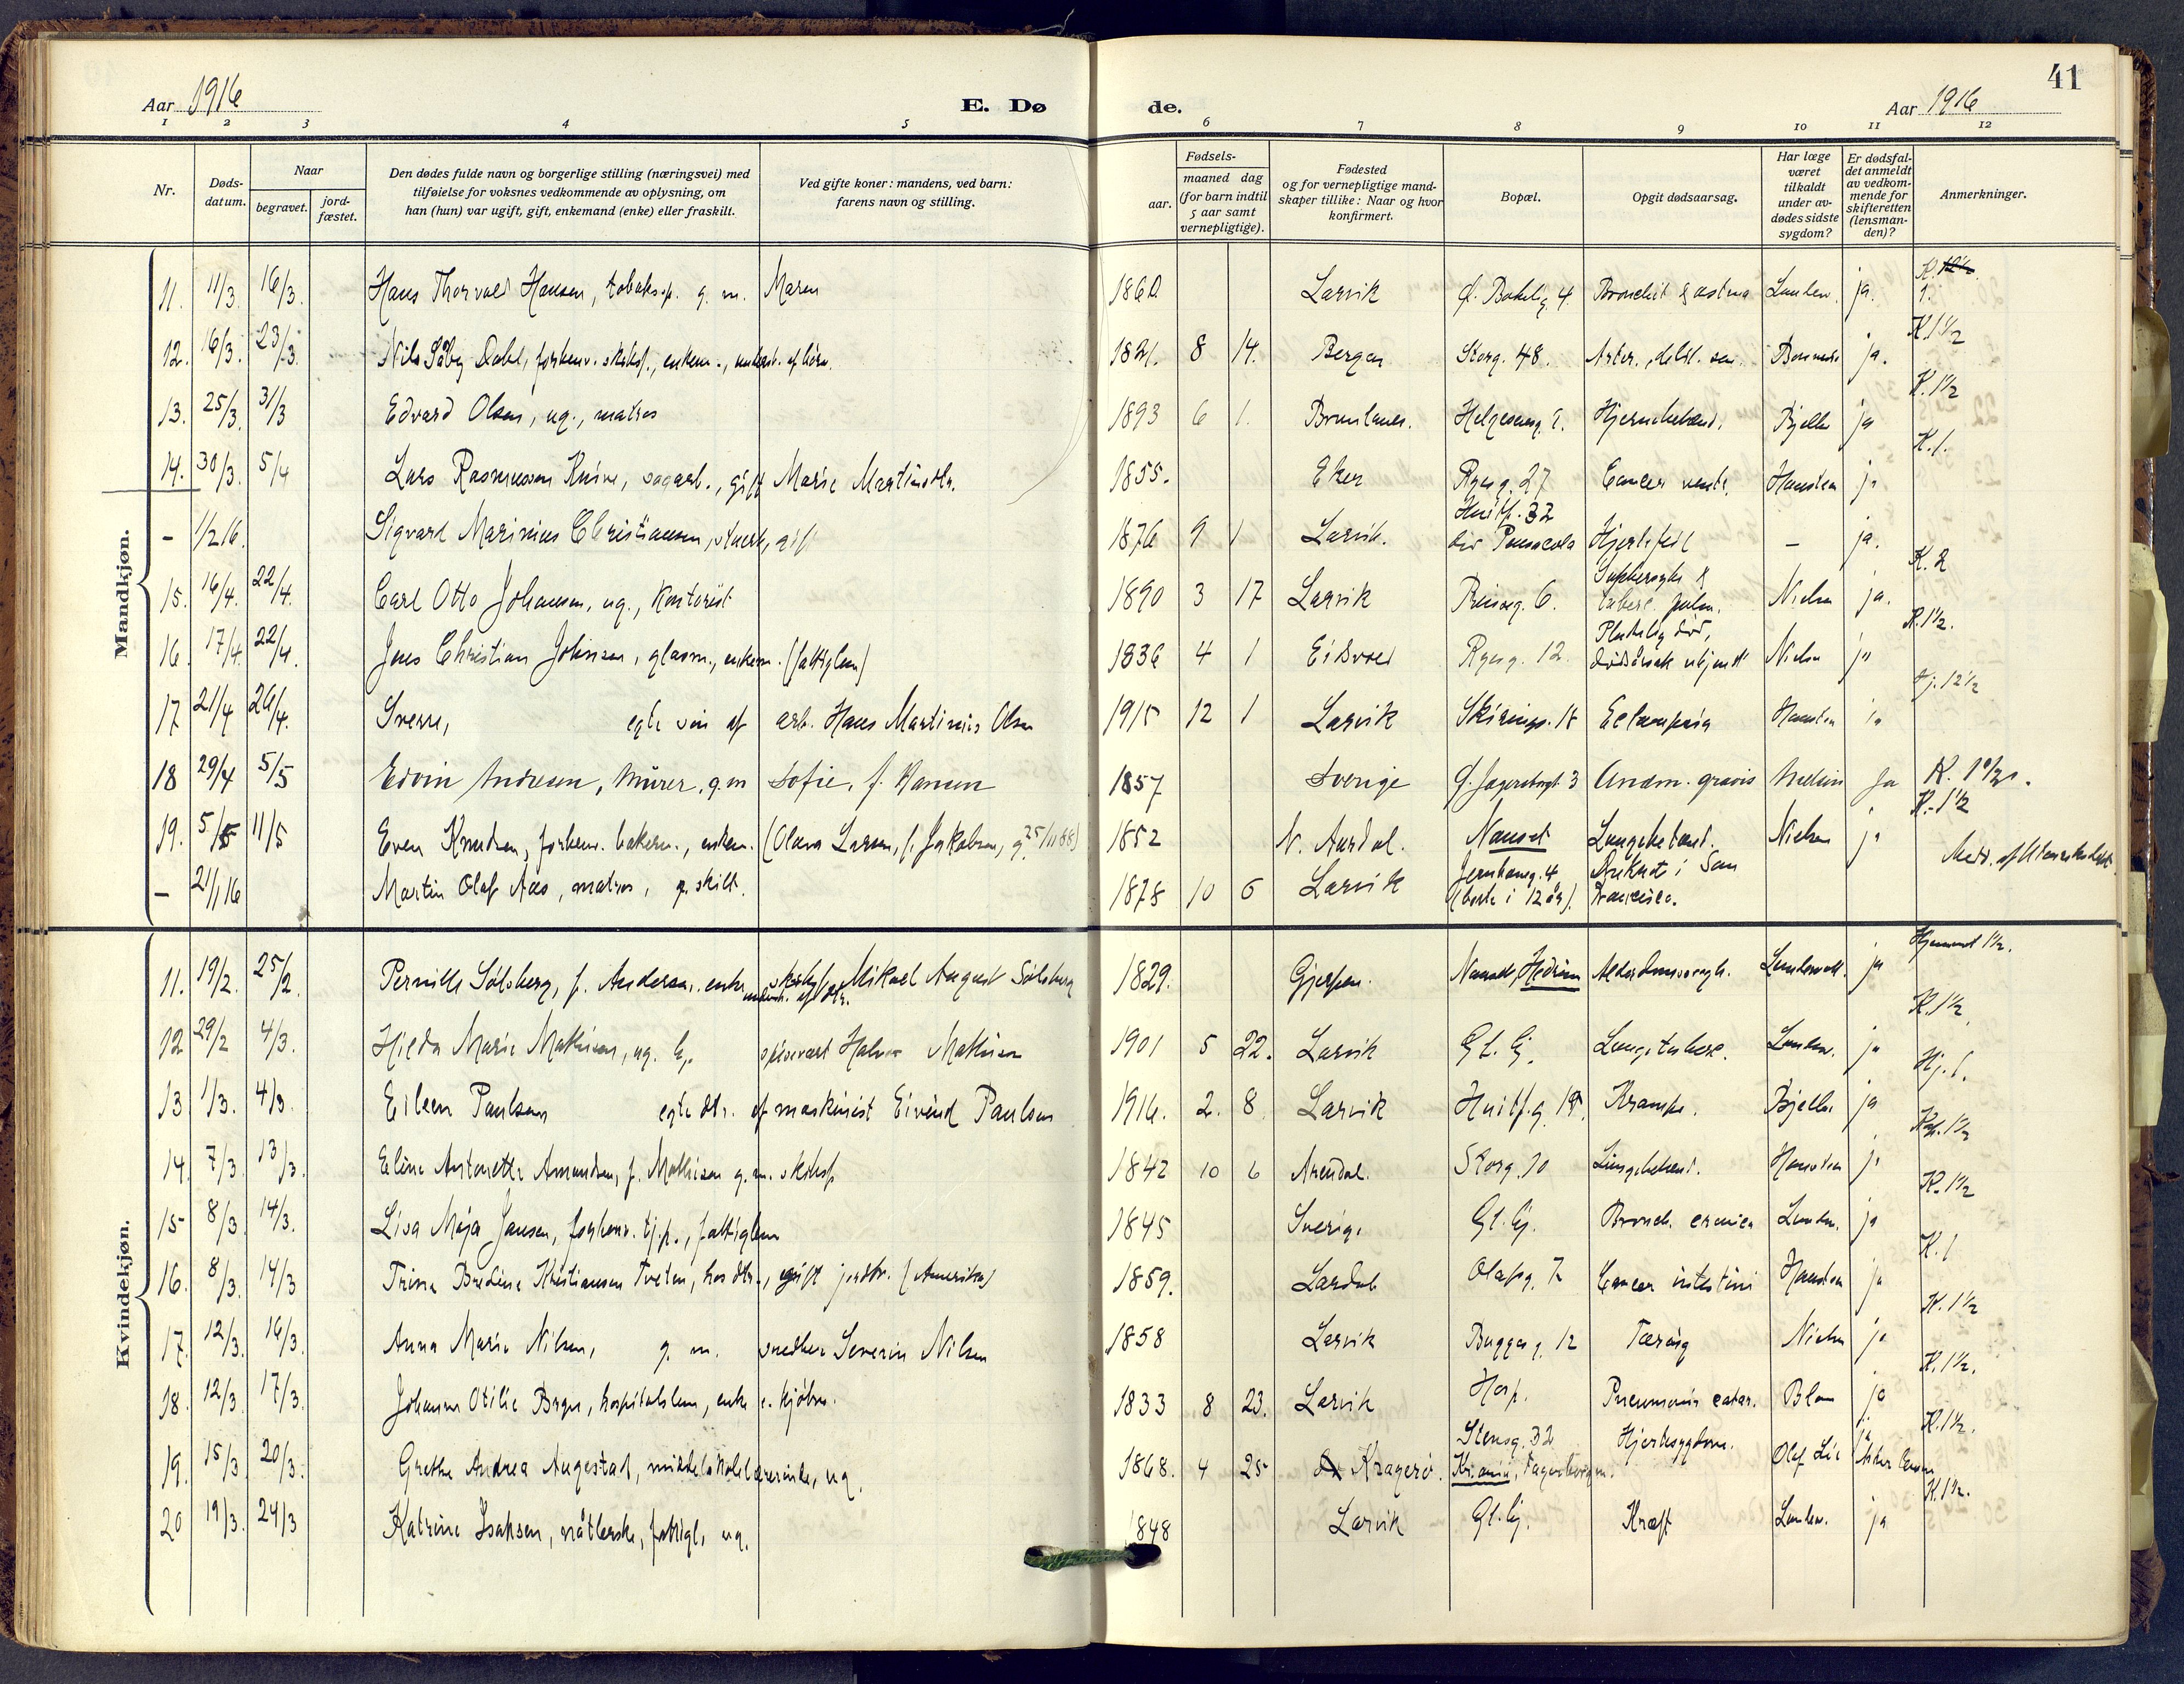 41
Aar 1916
E. Dø
de.
Aar 1916
1 2 3 4 5 6 7 8 9 10 11 12
Nr.
Døds-datum.
Naar
begravet.
jord-fæstet.
Den dødes fulde navn og borgerlige stilling (næringsvei) med
tilføielse for voksnes vedkommende av oplysning, om
han (hun) var ugift, gift, enkemand (enke) eller fraskilt.
Ved gifte koner: mandens, ved barn:
farens navn og stilling.
Fødsels-
aar.
maaned dag
(for barn indtil
5 aar samt
vernepligtige).
Fødested
og for vernepligtige mand-
skaper tillike: Naar og hvor
konfirmert.
Bopæl.
Opgit dødsaarsag.
Har læge
været
tilkaldt
under av-
dødes sidste
sygdom?
Er dødsfal-
det anmeldt
av vedkom-
mende for
skifteretten
(lensman-
den)?
Anmerkninger.
Mandkjøn.
11. 11/3. 16/3. Hans Thorvald Hansen, tobaksp. g. m. Maren 1860. Larvik Ø. Bøkelig. 4 Bronchit & astma ja. K. 1.
12. 16/3. 23/3. Nils Dahl, forhenv. skibsf., enkem., 1821. 8 14. Bergen Storg. 48. ja. K. 1½
13. 25/3. 31/3 Edvard Olsen, ug., matros 1893 6 1. Brunlanes. Helgesensg. Hjernebetænd. Bjelke ja K. 1½
14. 30/3. 5/4 Lars Rasmussen, sagarb., gift Marie Martinsdtr. 1855. Eker Ryesg. 27 Cancer ventr. Haneten ja K. 1.
— 1/2 16. Sigvard Marinius Christiansen, gift 1876 9 1 Larvik. Huitf. 32 død Pensacola Hjertefeil — ja.
15. 16/4. 22/4. Carl Otto Johansen, ug., kontorist 1890 3 17 Larvik Prinseg. 6. Sukkersyke & tuberc. pulm. Nielsen ja. K. 2
16. 17/4. 22/4. Jens Christian Johnsen, glasm., enkem. (fattiglem) 1836 4 1 Eidsvold Ryesg. 12. Pludselig død, dødsårsak ukjendt Nielsen ja K. 1½.
17 21/4 26/4. Sverre, egte søn af arb. Hans Martinius Olsen 1915 12 1 Larvik Skiringss. 18 Eclampsia ja Hj. 12½
18 29/4 5/5 Edvin Andresen, murer, g. m Sofie, f. Hansen 1857 Sverige Ø. Jegersborgt 3 Anæm. gravis Nielsen Ja K. 1½.
19. 5/5 11/5 Even Knudsen, forhenv. bakerm., enkem. (Olava Larsen, f. Jakobsen, g. 25/11 88) 1852 N. Aurdal. Nanset Lungebetænd. Nielsen ja K. 1½
— 21/1 16 Martin Olaf Aas, matros, g. skilt. 1878 10 6 Larvik Jernbaneg. 4 (borte i 12 år). Druknet i San Francisco.
Kvindekjøn.
11. 19/2. 25/2. Pernille Sølsberg, f. Andersen, enke skibsf. Mikael August Sølsberg 1829. Gjerpen. Nanset, Hedrum Alderdomssvagh. ja Hjemmet 1½.
12 29/2 4/3. Hilda Marie Mathisen, ug. spisevært Halvor Mathisen 1901 5 22. Larvik Gl. Lungetuberc. ja K. 1½
13 1/3. 4/3. Eileen Paulsen egte dtr. af maskinist Eivind Paulsen 1916. 2. 8. Larvik Huitf.g. 18. Krampe. Bjelke ja Hj. 1.
14. 7/3. 13/3. Eline Antonette Amundsen, f. Mathisen g. m. skibsf. 1842 10 6 Arendal. Storg. 70 Lungebetænd. ja 1½
15 8/3. 14/3. Lisa Maja Jansen, forhenv. tj.p., fattiglem 1845 Sverige Gl. Bronch. cronica ja K. 1½
16. 8/3. 14/3 Trine Bredine Kristiansen Tveten, hos dtr., gift jordbr. (Amerika) 1859. Lardal Olafsg. 7 Cancer intestini ja K. 1
17. 12/3. 16/3. Anna Marie Nilsen, g. m. snedker Severin Nilsen 1858 Larvik Buggesg. 12 Tæring Nielsen ja K. 1½
18. 12/3. 17/3. Johanne Otilie Bryn, hospitalslem, enke e. kjøbm. 1833 8 23. Larvik Hosp. Pneumonia catar. Blom ja K. 1½.
19. 15/3 20/3. Grethe Andrea Augestad, middelskolelærerinde, ug. 1868. 4 25 Kragerø. Stensg. 32 Kr.ania, Fagerborg m. Hjertesygdom. Olaf Lie K. 1½.
20 19/3. 24/3 Katrine Isaksen, nåtlerske, fattigl. ug. 1848 Larvik Gl. Kræft ja K. 1½.